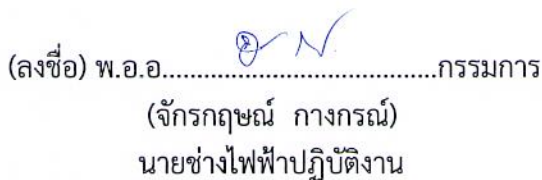 (ลงชื่อ) พ.อ.อ.......................................กรรมการ
(จักรกฤษณ์ กางกรณ์)
นายช่างไฟฟ้าปฏิบัติงาน